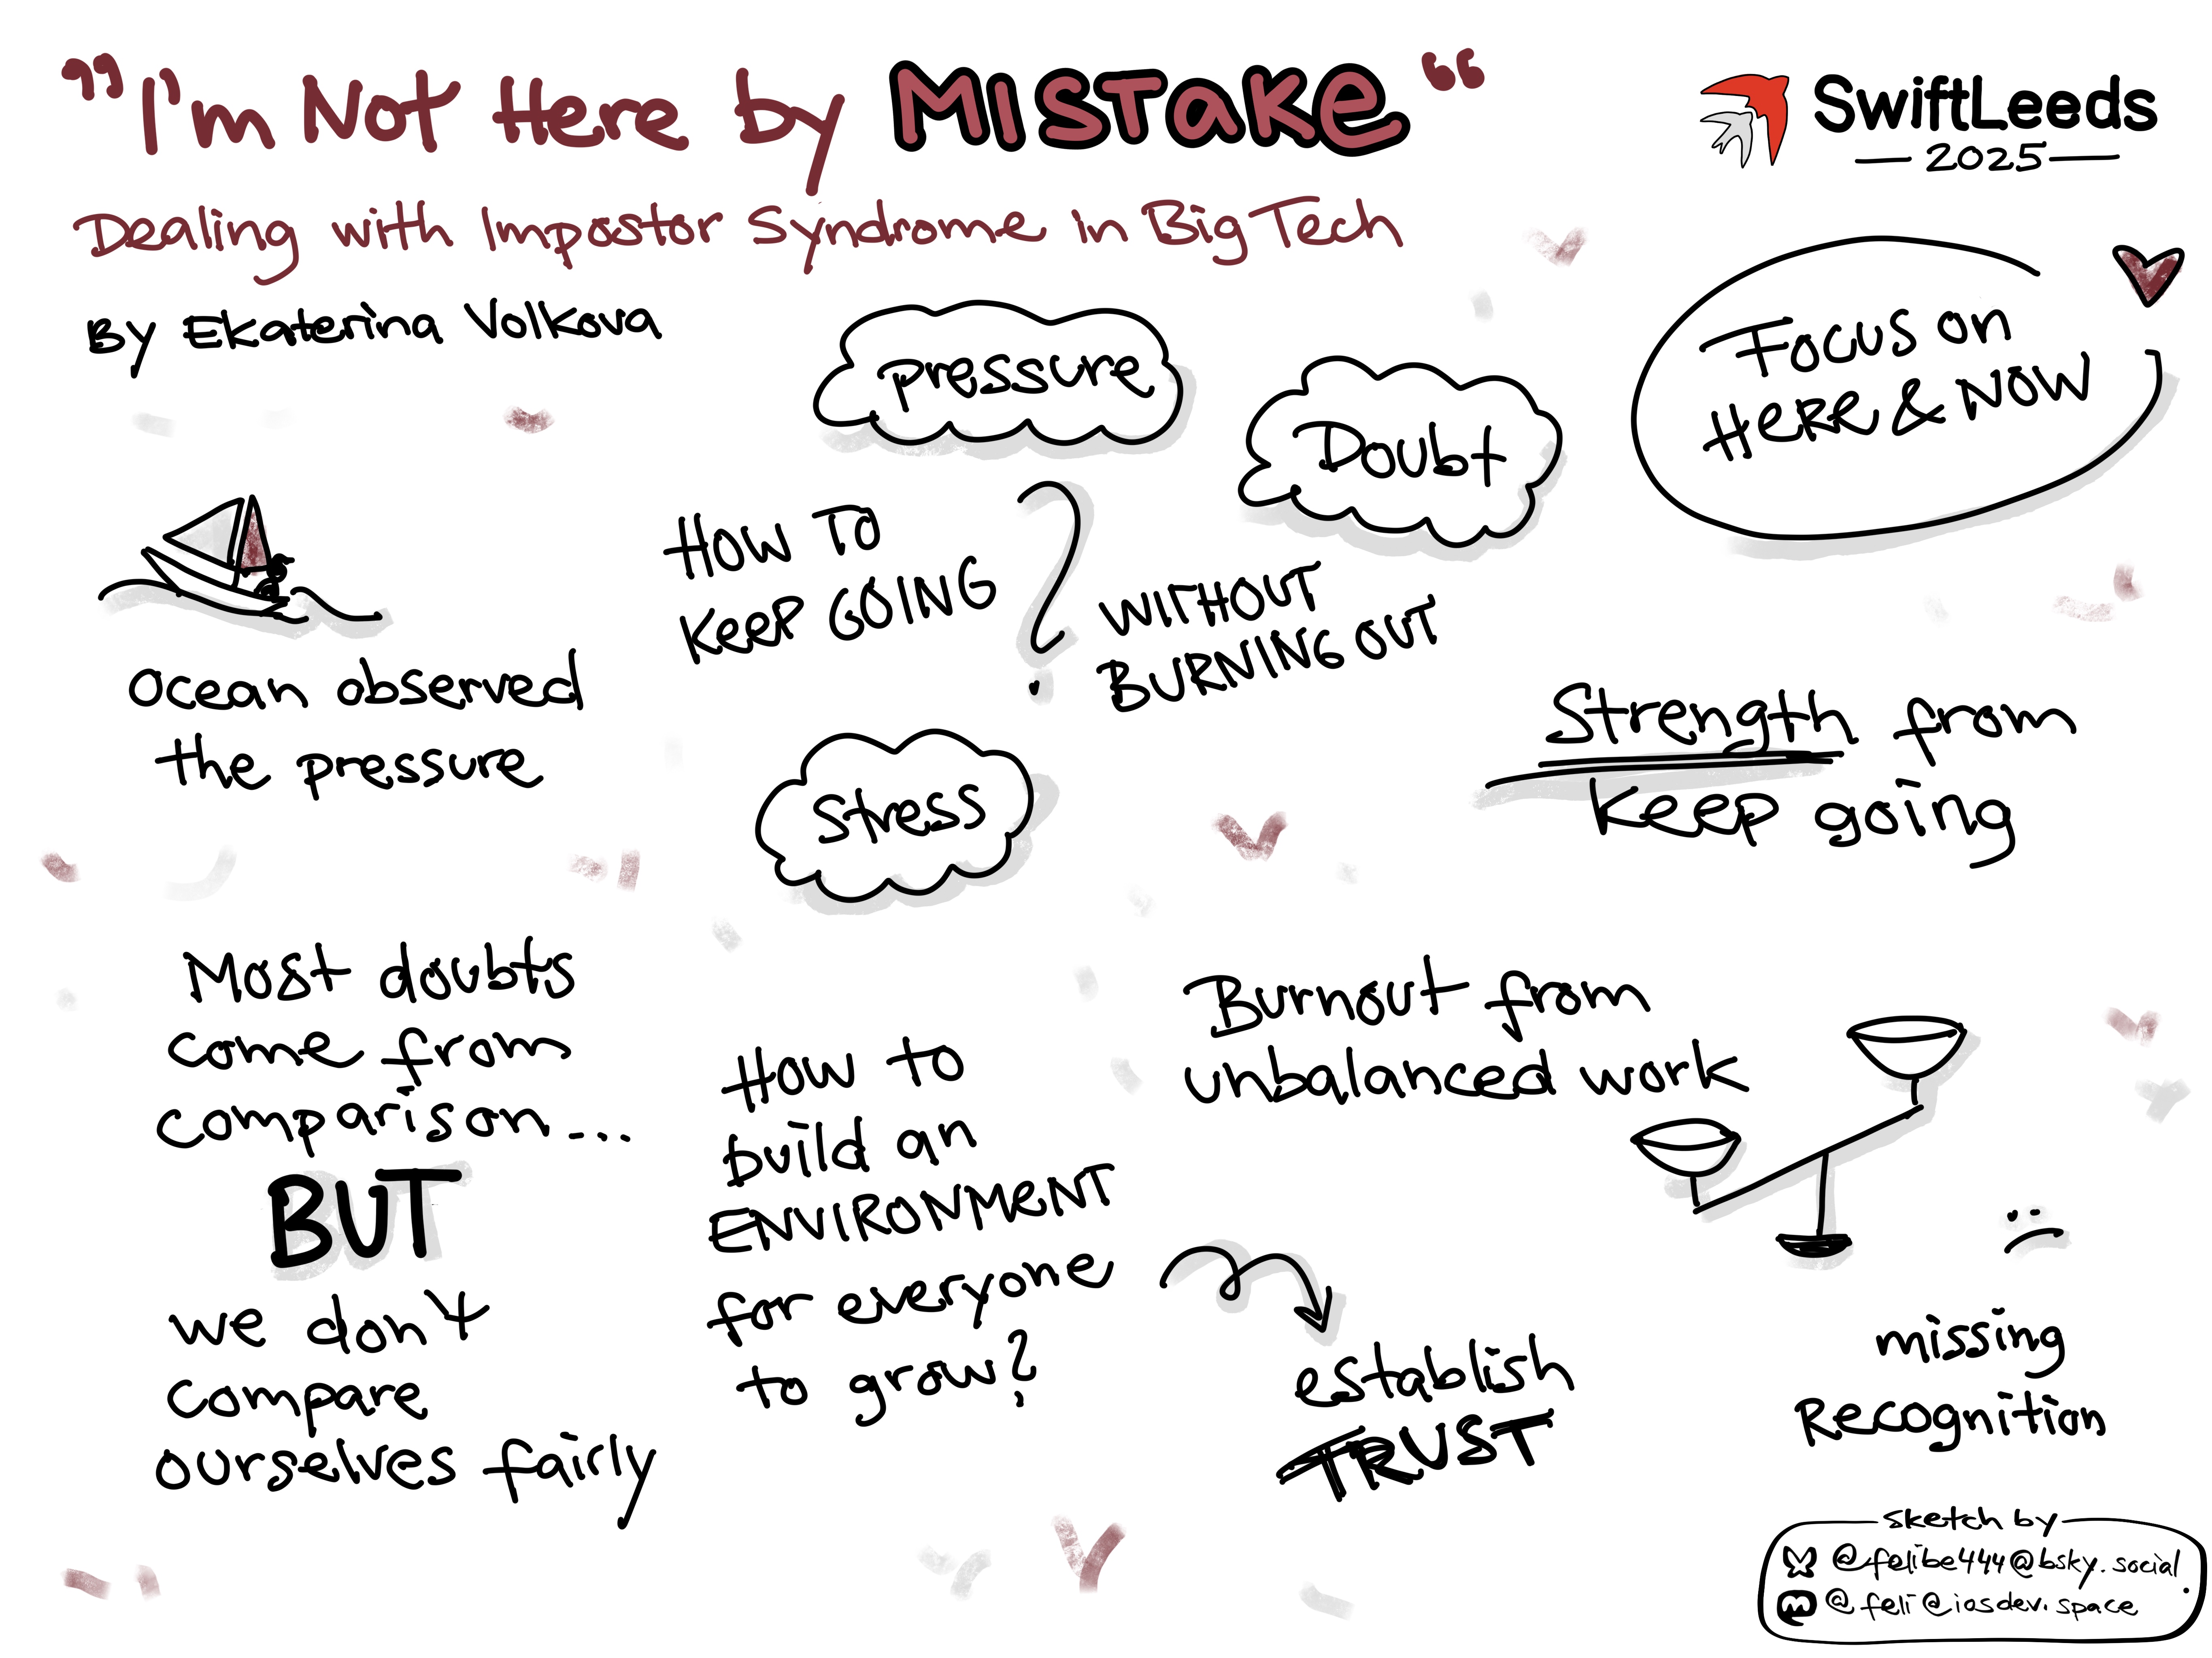 "I'm Not Here by MISTAKE"
Dealing with Impostor Syndrome in Big Tech
By Ekaterina Volkova
SwiftLeeds
2025
pressure
Doubt
Focus on
HERE & NOW
HOW TO
KEEP GOING
?
WITHOUT
BURNING OUT
Ocean observed
the pressure
Stress
Strength from
keep going
Most doubts
come from
comparison...
BUT
we don't
compare
ourselves fairly
How to
build an
ENVIRONMENT
for everyone
to grow?
Burnout from
unbalanced work
establish
TRUST
missing
Recognition
sketch by
@felibe444@bsky.social
@feli@iosdev.space